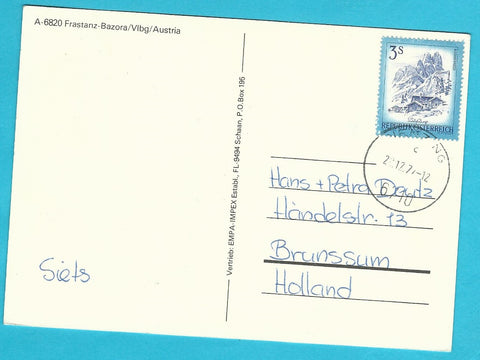 A-6820 Frastanz-Bazora/Vlbg/Austria
Vertrieb: EMPA-IMPEX Establ., FL-9494 Schaan, P.O.Box 195
3 S
REPUBLIK ÖSTERREICH
6710
Hans + Petra
Händelstr. 13
Brunssum
Holland
Siets